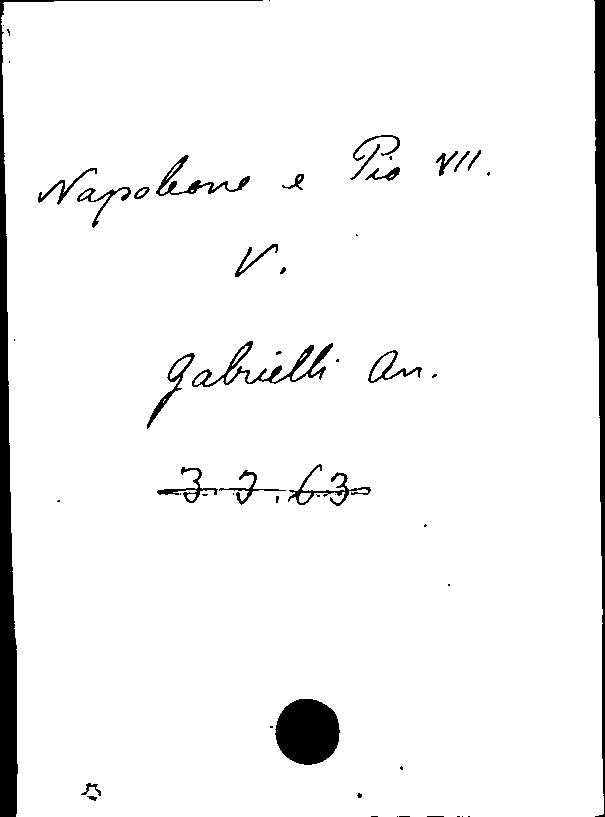 Napoleone e Pio VII.
V.
Gabrielli An.
3.2.63